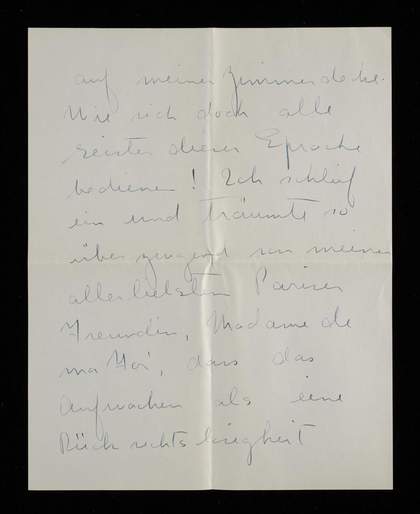 auf meiner Zimmerdecke.
Wie sich doch alle
Geister dieser Sprache
bedienen! Ich schlief
ein und träumte so
überzeugend von meiner
allerliebsten Pariser
Freundin, Madame de
dass das
Aufwachen als eine
Rücksichtslosigkeit